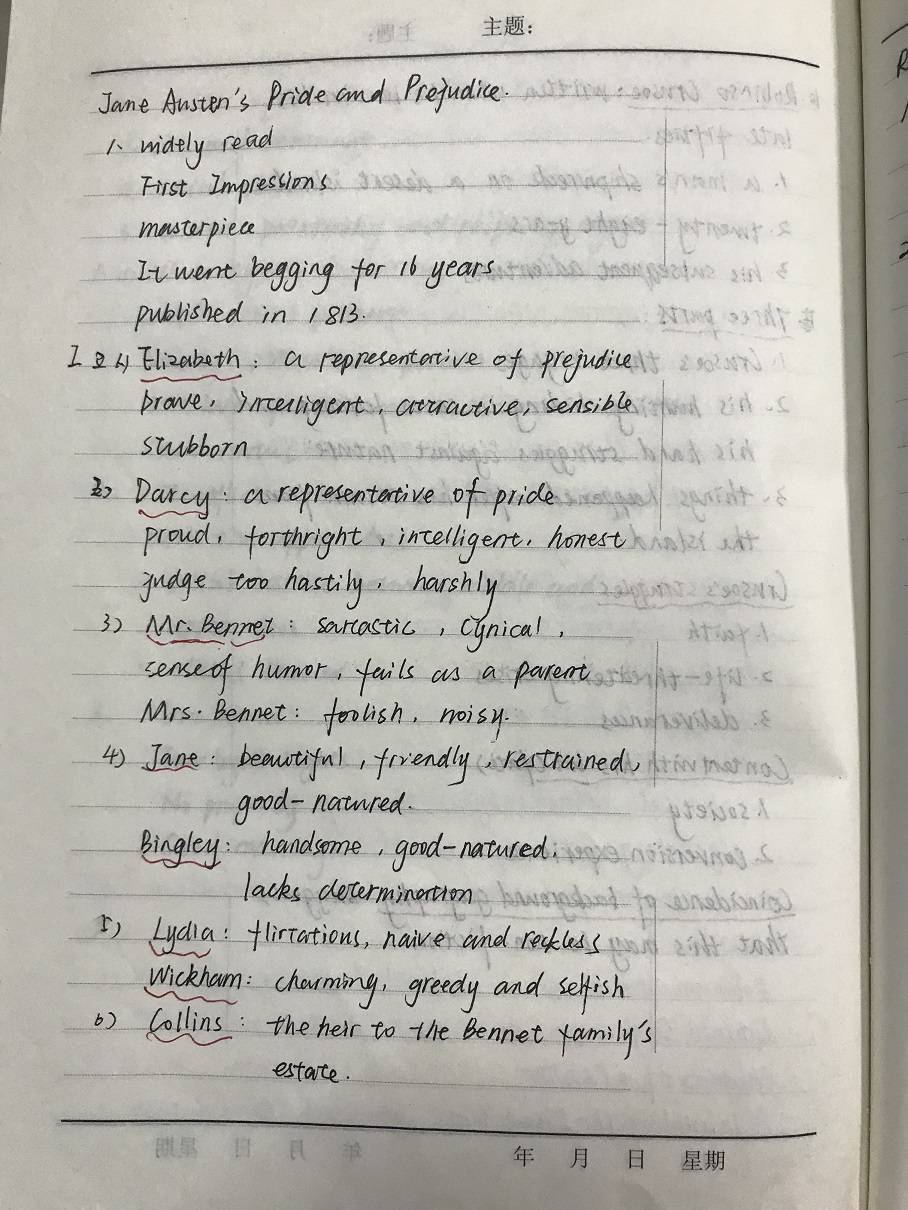 主题:
Jane Austen's Pride and Prejudice.
1、 widely read
First Impressions
masterpiece
It went begging for 16 years
published in 1813.
1) Elizabeth: a representative of prejudice
brave, intelligent, attractive, sensible
stubborn
2) Darcy: a representative of pride
proud, forthright, intelligent, honest
judge too hastily, harshly
3) Mr. Bennet: sarcastic, cynical,
sense of humor, fails as a parent
Mrs. Bennet: foolish, noisy.
4) Jane: beautiful, friendly, restrained,
good-natured.
Bingley: handsome, good-natured,
lacks determination
5) Lydia: flirtations, naive and reckless
Wickham: charming, greedy and selfish
6) Collins: the heir to the Bennet family's
estate.
年 月 日 星期